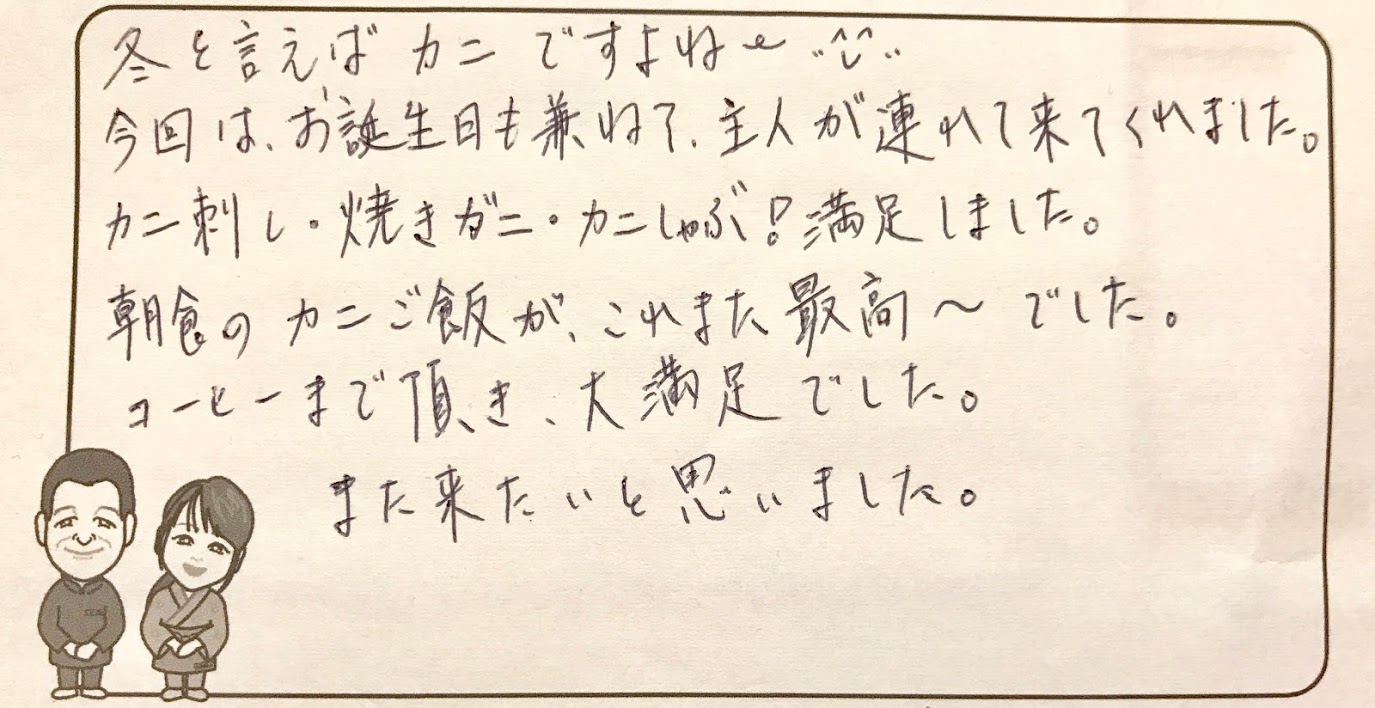 冬と言えばカニですよね〜 ¨^ᴗ^¨
今回は、お誕生日も兼ねて、主人が連れて来てくれました。
カニ刺し・焼きガニ・カニしゃぶ!満足しました。
朝食のカニご飯が、これまた最高〜でした。
コーヒーまで頂き、大満足でした。
また来たいと思いました。